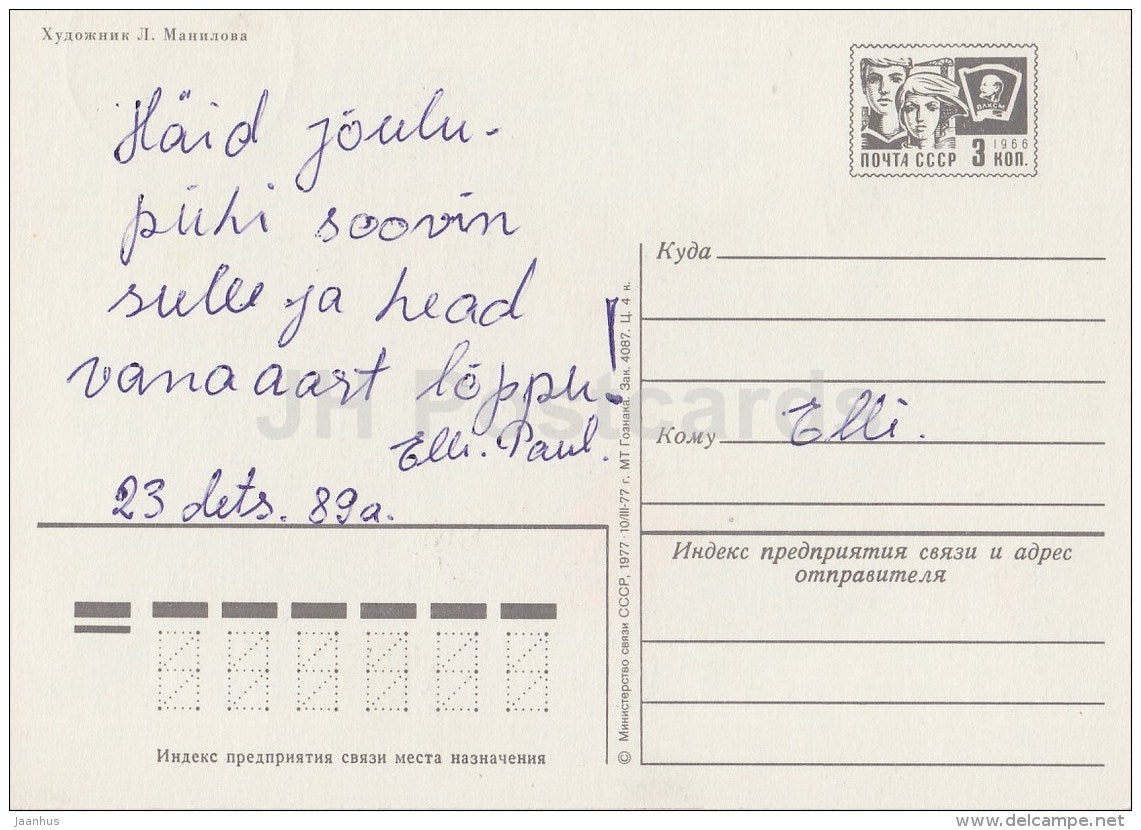 Художник Л. Манилова
Häid jõulu-
pühi soovin
sulle ja head
vanaaast lõppu!
Elli. Paul.
23 dets. 89a.
ВЛКСМ
1966
ПОЧТА СССР 3 КОП.
Куда
Кому Elli.
Индекс предприятия связи и адрес
отправителя
Индекс предприятия связи места назначения
© Министерство связи СССР, 1977 10/III-77 г. МТ Гознака. Зак. 4087. Ц. 4 к.
JH Postcards
Jaanhus
www.delcampe.net